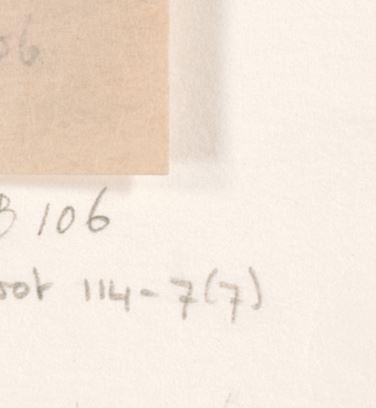 06
B 106
oot 114-7(7)